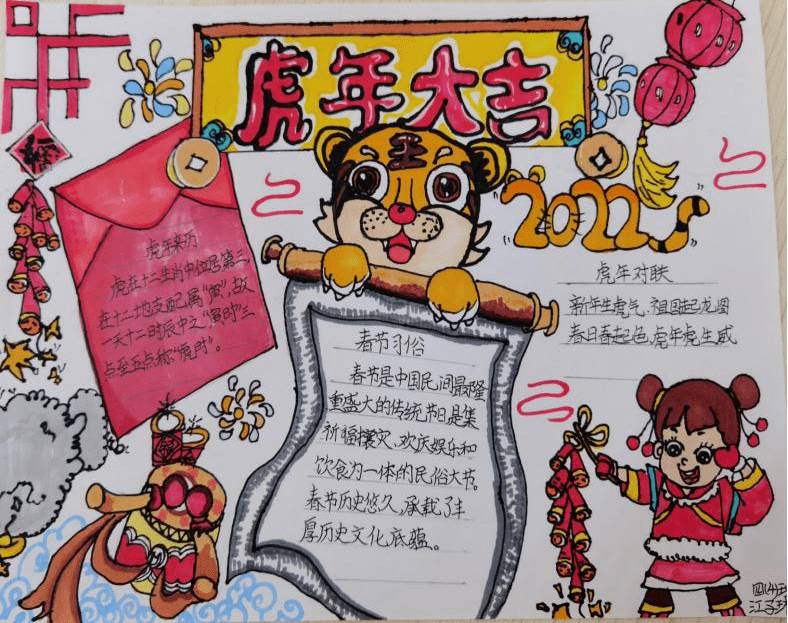 虎年大吉
2022
虎年来历
虎在十二生肖中位居第三,
在十二地支配属"寅",故
一天十二时辰中之"寅时"三
点至五点称"虎时"。
春节习俗
春节是中国民间最隆
重盛大的传统节日是集
祈福攘灾、欢庆娱乐和
饮食为一体的民俗大节。
春节历史悠久,承载了丰
厚历史文化底蕴。
虎年对联
新年生虎气,祖国起龙图
春日春起色,虎年虎生威
江子